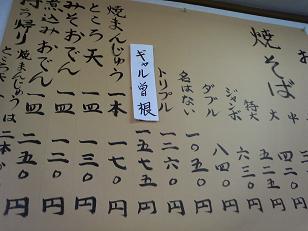 焼そば
中
大
特大 五二五円
ジャンボ 六三〇円
ダブル 八四〇円
名はない 一〇五〇円
トリプル 一二六〇円
ギャル曽根 一五七五円
焼まんじゅう 一本 一七〇円
ところ天 一皿 一三〇円
みそおでん 一皿 一三〇円
煮込みおでん 一皿 二五〇円
焼まんじゅうは二本
ところ天